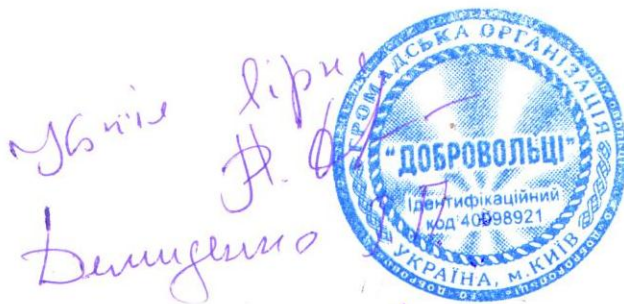 Копія вірна
Демиденко
ГРОМАДСЬКА ОРГАНІЗАЦІЯ
"ДОБРОВОЛЬЦІ"
Ідентифікаційний
код 40098921
УКРАЇНА, м.КИЇВ